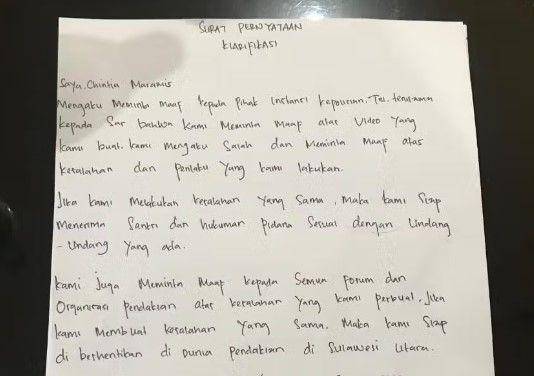 SURAT PERNYATAAN
KLARIFIKASI
Saya. Chintia Maramis
Mengaku Meminta maaf kepada Pihak Instansi kepolisian. TNI. terutama
kepada Sar bahwa kami Meminta Maaf atas Video yang
kami buat. kami mengaku Salah dan Meminta Maaf atas
kesalahan dan perilaku yang kami lakukan.
Jika kami Melakukan kesalahan yang Sama, Maka kami Siap
Menerima Sanksi dan hukuman Pidana Sesuai dengan Undang
- Undang yang ada.
kami juga Meminta Maaf kepada Semua Forum dan
Organisasi Pendakian atas kesalahan yang kami perbuat. Jika
kami Membuat kesalahan yang Sama. Maka kami Siap
di berhentikan di Dunia Pendakian di Sulawesi Utara.